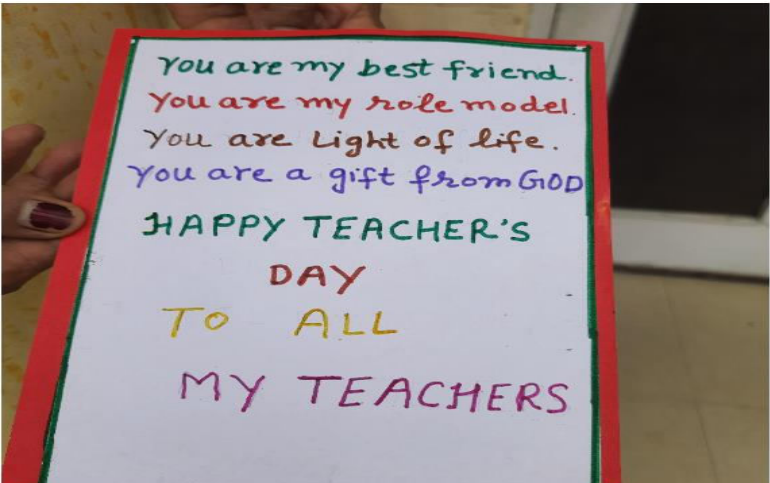 You are my best friend.
You are my role model.
You are Light of life.
You are a gift from GOD
HAPPY TEACHER'S
DAY
TO ALL
MY TEACHERS